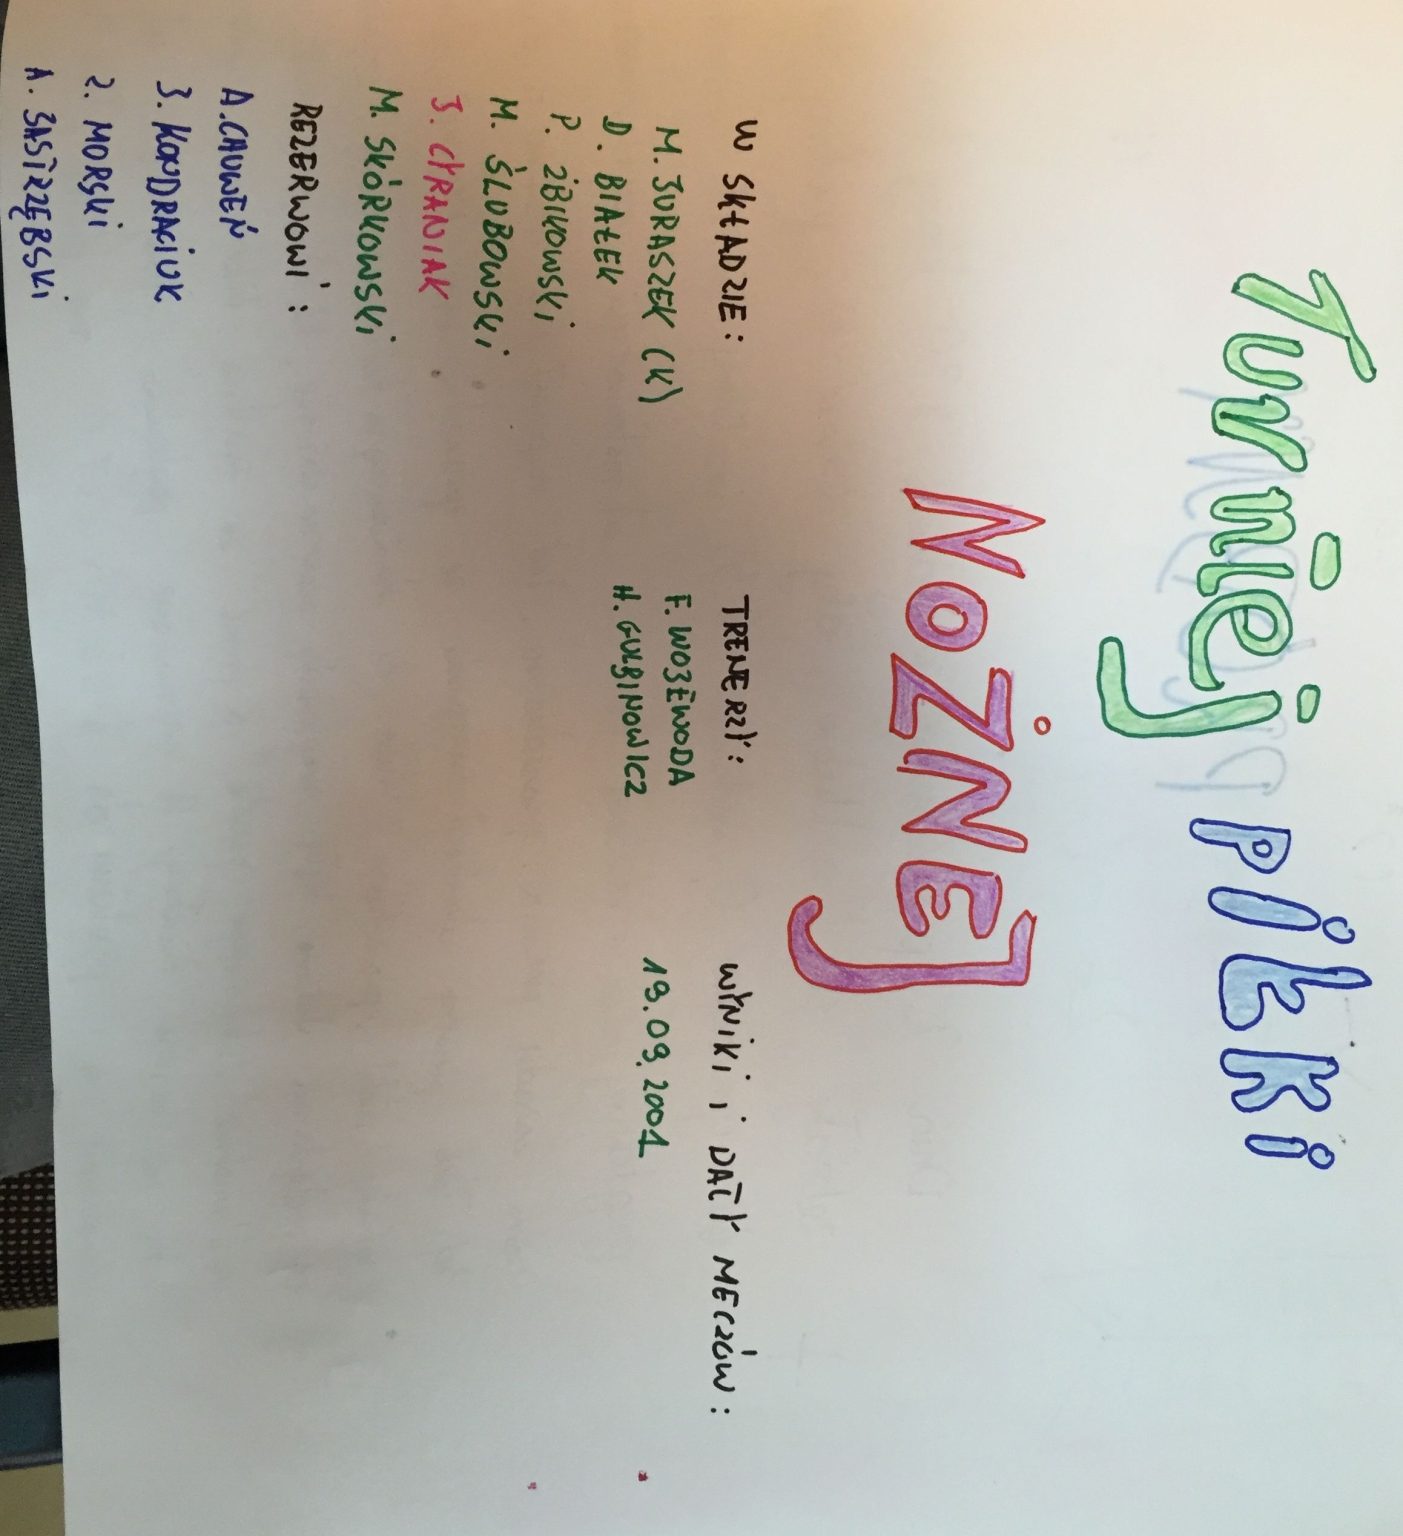 Turniej PiŁKi
NoŻNEJ
W SKŁADZIE:
M. JURASZEK (K)
D. BIAŁEK
P. ŻBIKOWSKi
M. ŚLUBOWSKi
J. CYRANIAK
M. SKÓRKOWSKi
REZERWOWI:
A. CHUWEŃ
3. KONDRACIUK
2. MORSKi
1. JASTRZĘBSKi
TRENERZY:
F. WOJEWODA
H. GULBINOWICZ
WYNiKi i DATY MECZÓW:
19.09.2001